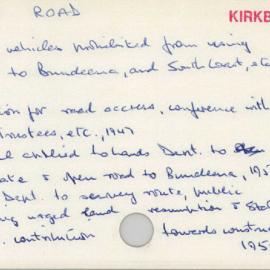 ROAD
KIRKB
vehicles prohibited from using
to Bundeena, and South Coast, etc
ion for road access, conference with
Trustees, etc., 1947
applied to Lands Dept. to
ate & open road to Bundeena, 195
Dept. to survey route, public
ng urged land resumption &
. contribution towards constru
195